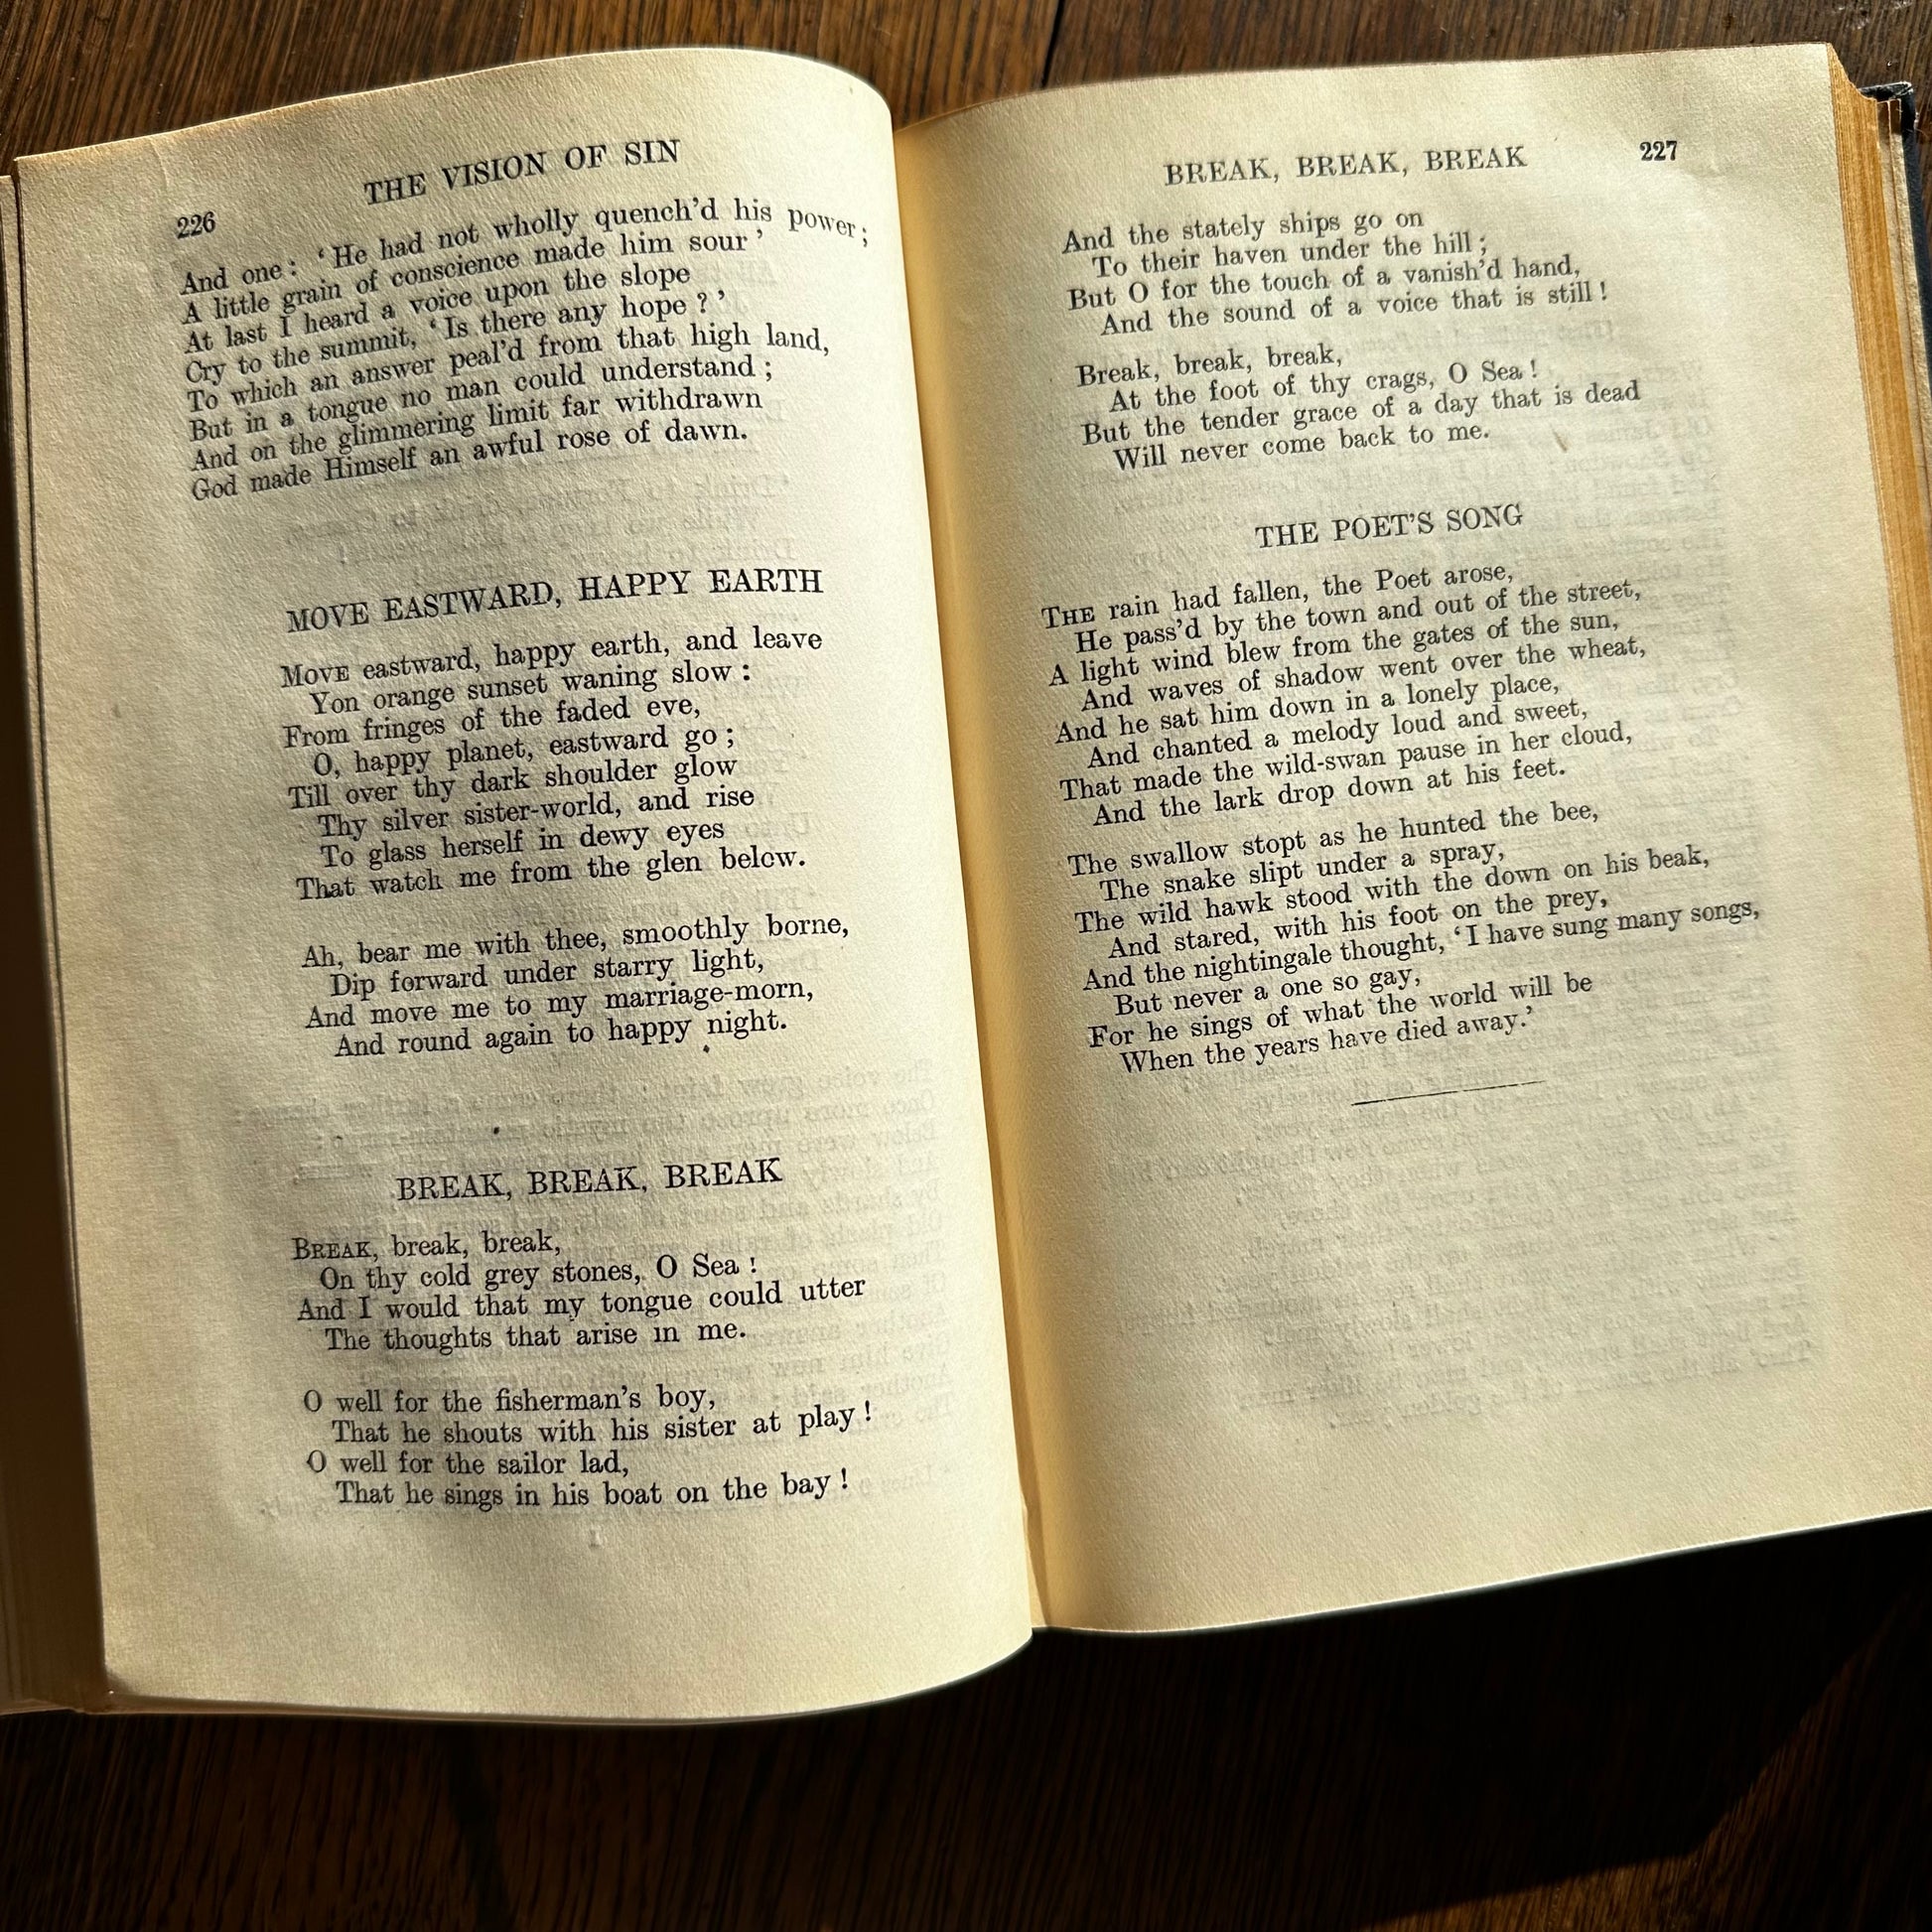 THE VISION OF SIN
226
And one: ‘He had not wholly quench’d his power;
A little grain of conscience made him sour’
At last I heard a voice upon the slope
Cry to the summit, ‘Is there any hope?’
To which an answer peal’d from that high land,
But in a tongue no man could understand;
And on the glimmering limit far withdrawn
God made Himself an awful rose of dawn.
MOVE EASTWARD, HAPPY EARTH
MOVE eastward, happy earth, and leave
Yon orange sunset waning slow:
From fringes of the faded eve,
O, happy planet, eastward go;
Till over thy dark shoulder glow
Thy silver sister-world, and rise
To glass herself in dewy eyes
That watch me from the glen below.
Ah, bear me with thee, smoothly borne,
Dip forward under starry light,
And move me to my marriage-morn,
And round again to happy night.
BREAK, BREAK, BREAK
BREAK, break, break,
On thy cold grey stones, O Sea!
And I would that my tongue could utter
The thoughts that arise in me.
O well for the fisherman’s boy,
That he shouts with his sister at play!
O well for the sailor lad,
That he sings in his boat on the bay!
BREAK, BREAK, BREAK 227
And the stately ships go on
To their haven under the hill;
But O for the touch of a vanish’d hand,
And the sound of a voice that is still!
Break, break, break,
At the foot of thy crags, O Sea!
But the tender grace of a day that is dead
Will never come back to me.
THE POET’S SONG
THE rain had fallen, the Poet arose,
He pass’d by the town and out of the street,
A light wind blew from the gates of the sun,
And waves of shadow went over the wheat,
And he sat him down in a lonely place,
And chanted a melody loud and sweet,
That made the wild-swan pause in her cloud,
And the lark drop down at his feet.
The swallow stopt as he hunted the bee,
The snake slipt under a spray,
The wild hawk stood with the down on his beak,
And stared, with his foot on the prey,
And the nightingale thought, ‘I have sung many songs,
But never a one so gay,
For he sings of what the world will be
When the years have died away.’